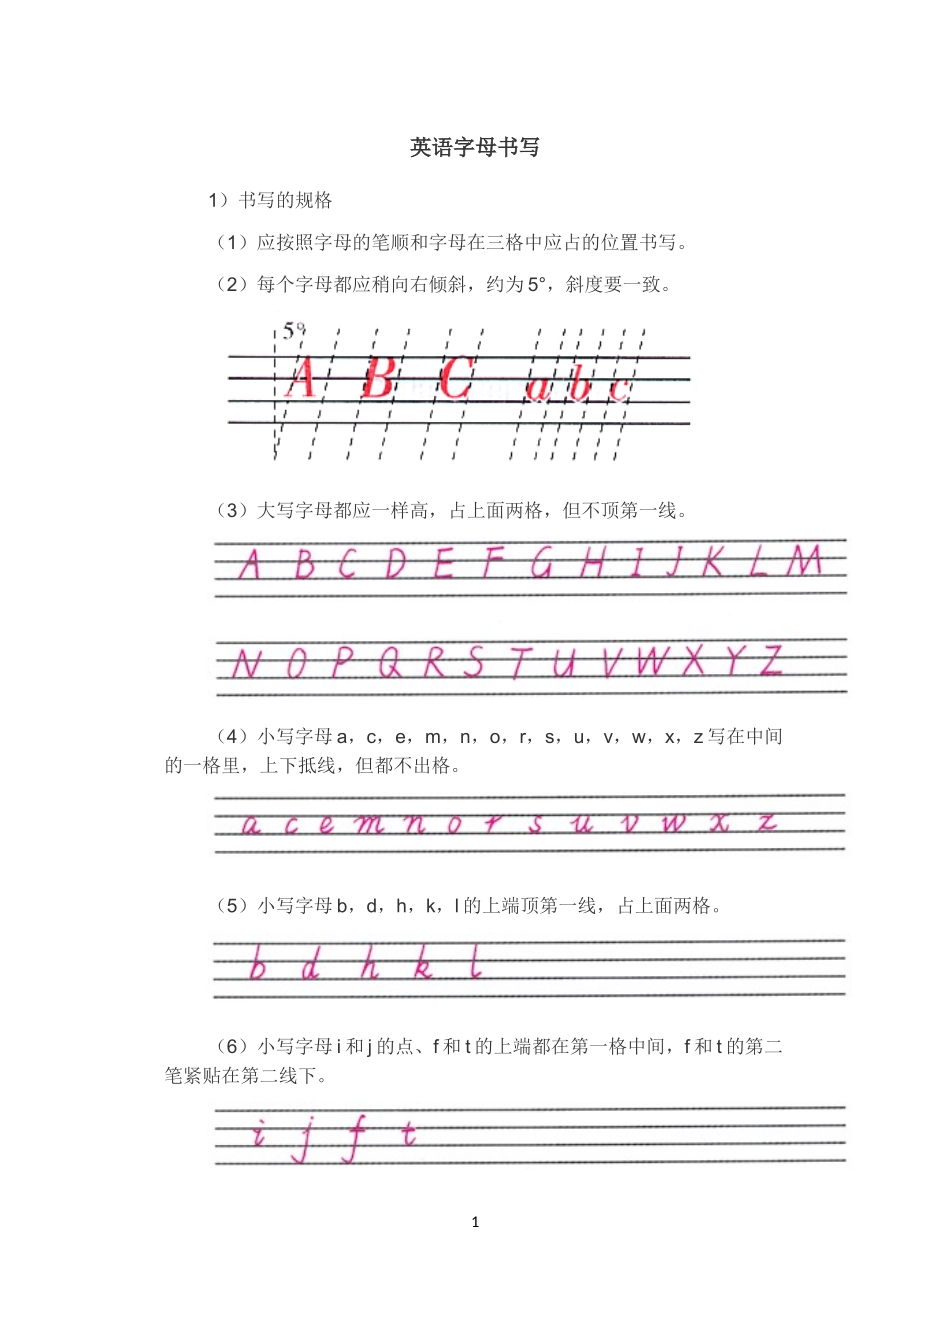 英语字母书写
1）书写的规格
（1）应按照字母的笔顺和字母在三格中应占的位置书写。
（2）每个字母都应稍向右倾斜，约为 5°，斜度要一致。
5°
A B C a b c
（3）大写字母都应一样高，占上面两格，但不顶第一线。
A B C D E F G H I J K L M
N O P Q R S T U V W X Y Z
（4）小写字母 a，c，e，m，n，o，r，s，u，v，w，x，z 写在中间
的一格里，上下抵线，但都不出格。
a c e m n o r s u v w x z
（5）小写字母 b，d，h，k，l 的上端顶第一线，占上面两格。
b d h k l
（6）小写字母 i 和 j 的点、f 和 t 的上端都在第一格中间，f 和 t 的第二
笔紧贴在第二线下。
i j f t
1